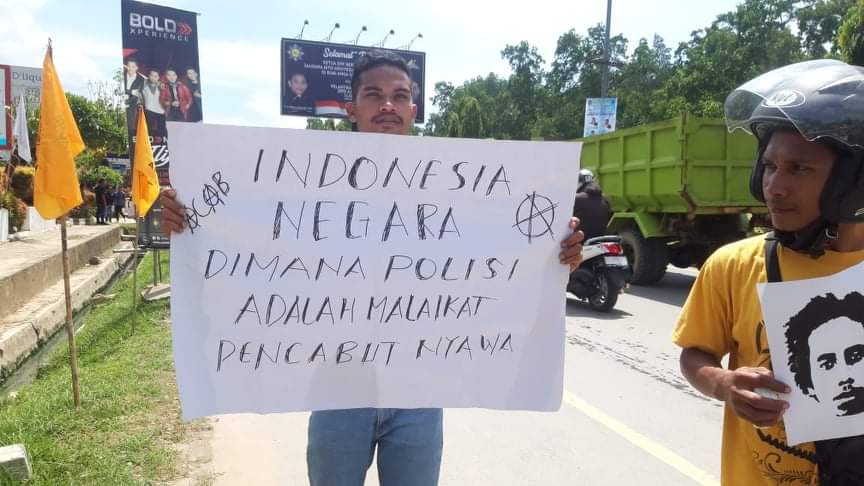 BOLD
XPERIENCE
D'liqu
Selamat
ACAB
INDONESIA
NEGARA
DIMANA POLISI
ADALAH MALAIKAT
PENCABUT NYAWA